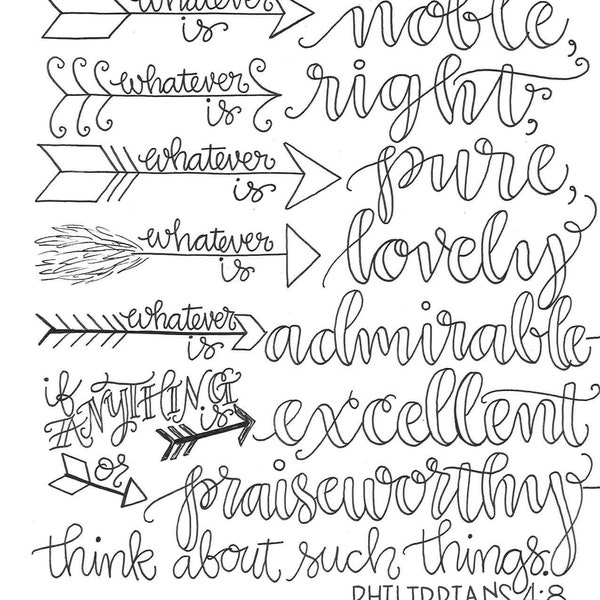 whatever is noble,
whatever is right,
whatever is pure,
whatever is lovely
whatever is admirable-
if ANYTHING is excellent
or praiseworthy-
think about such things.
PHILIPPIANS 4:8